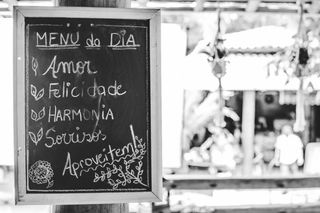 MENU do DIA
Amor
Felicidade
HARMONIA
Sorrisos
Aproveitem!